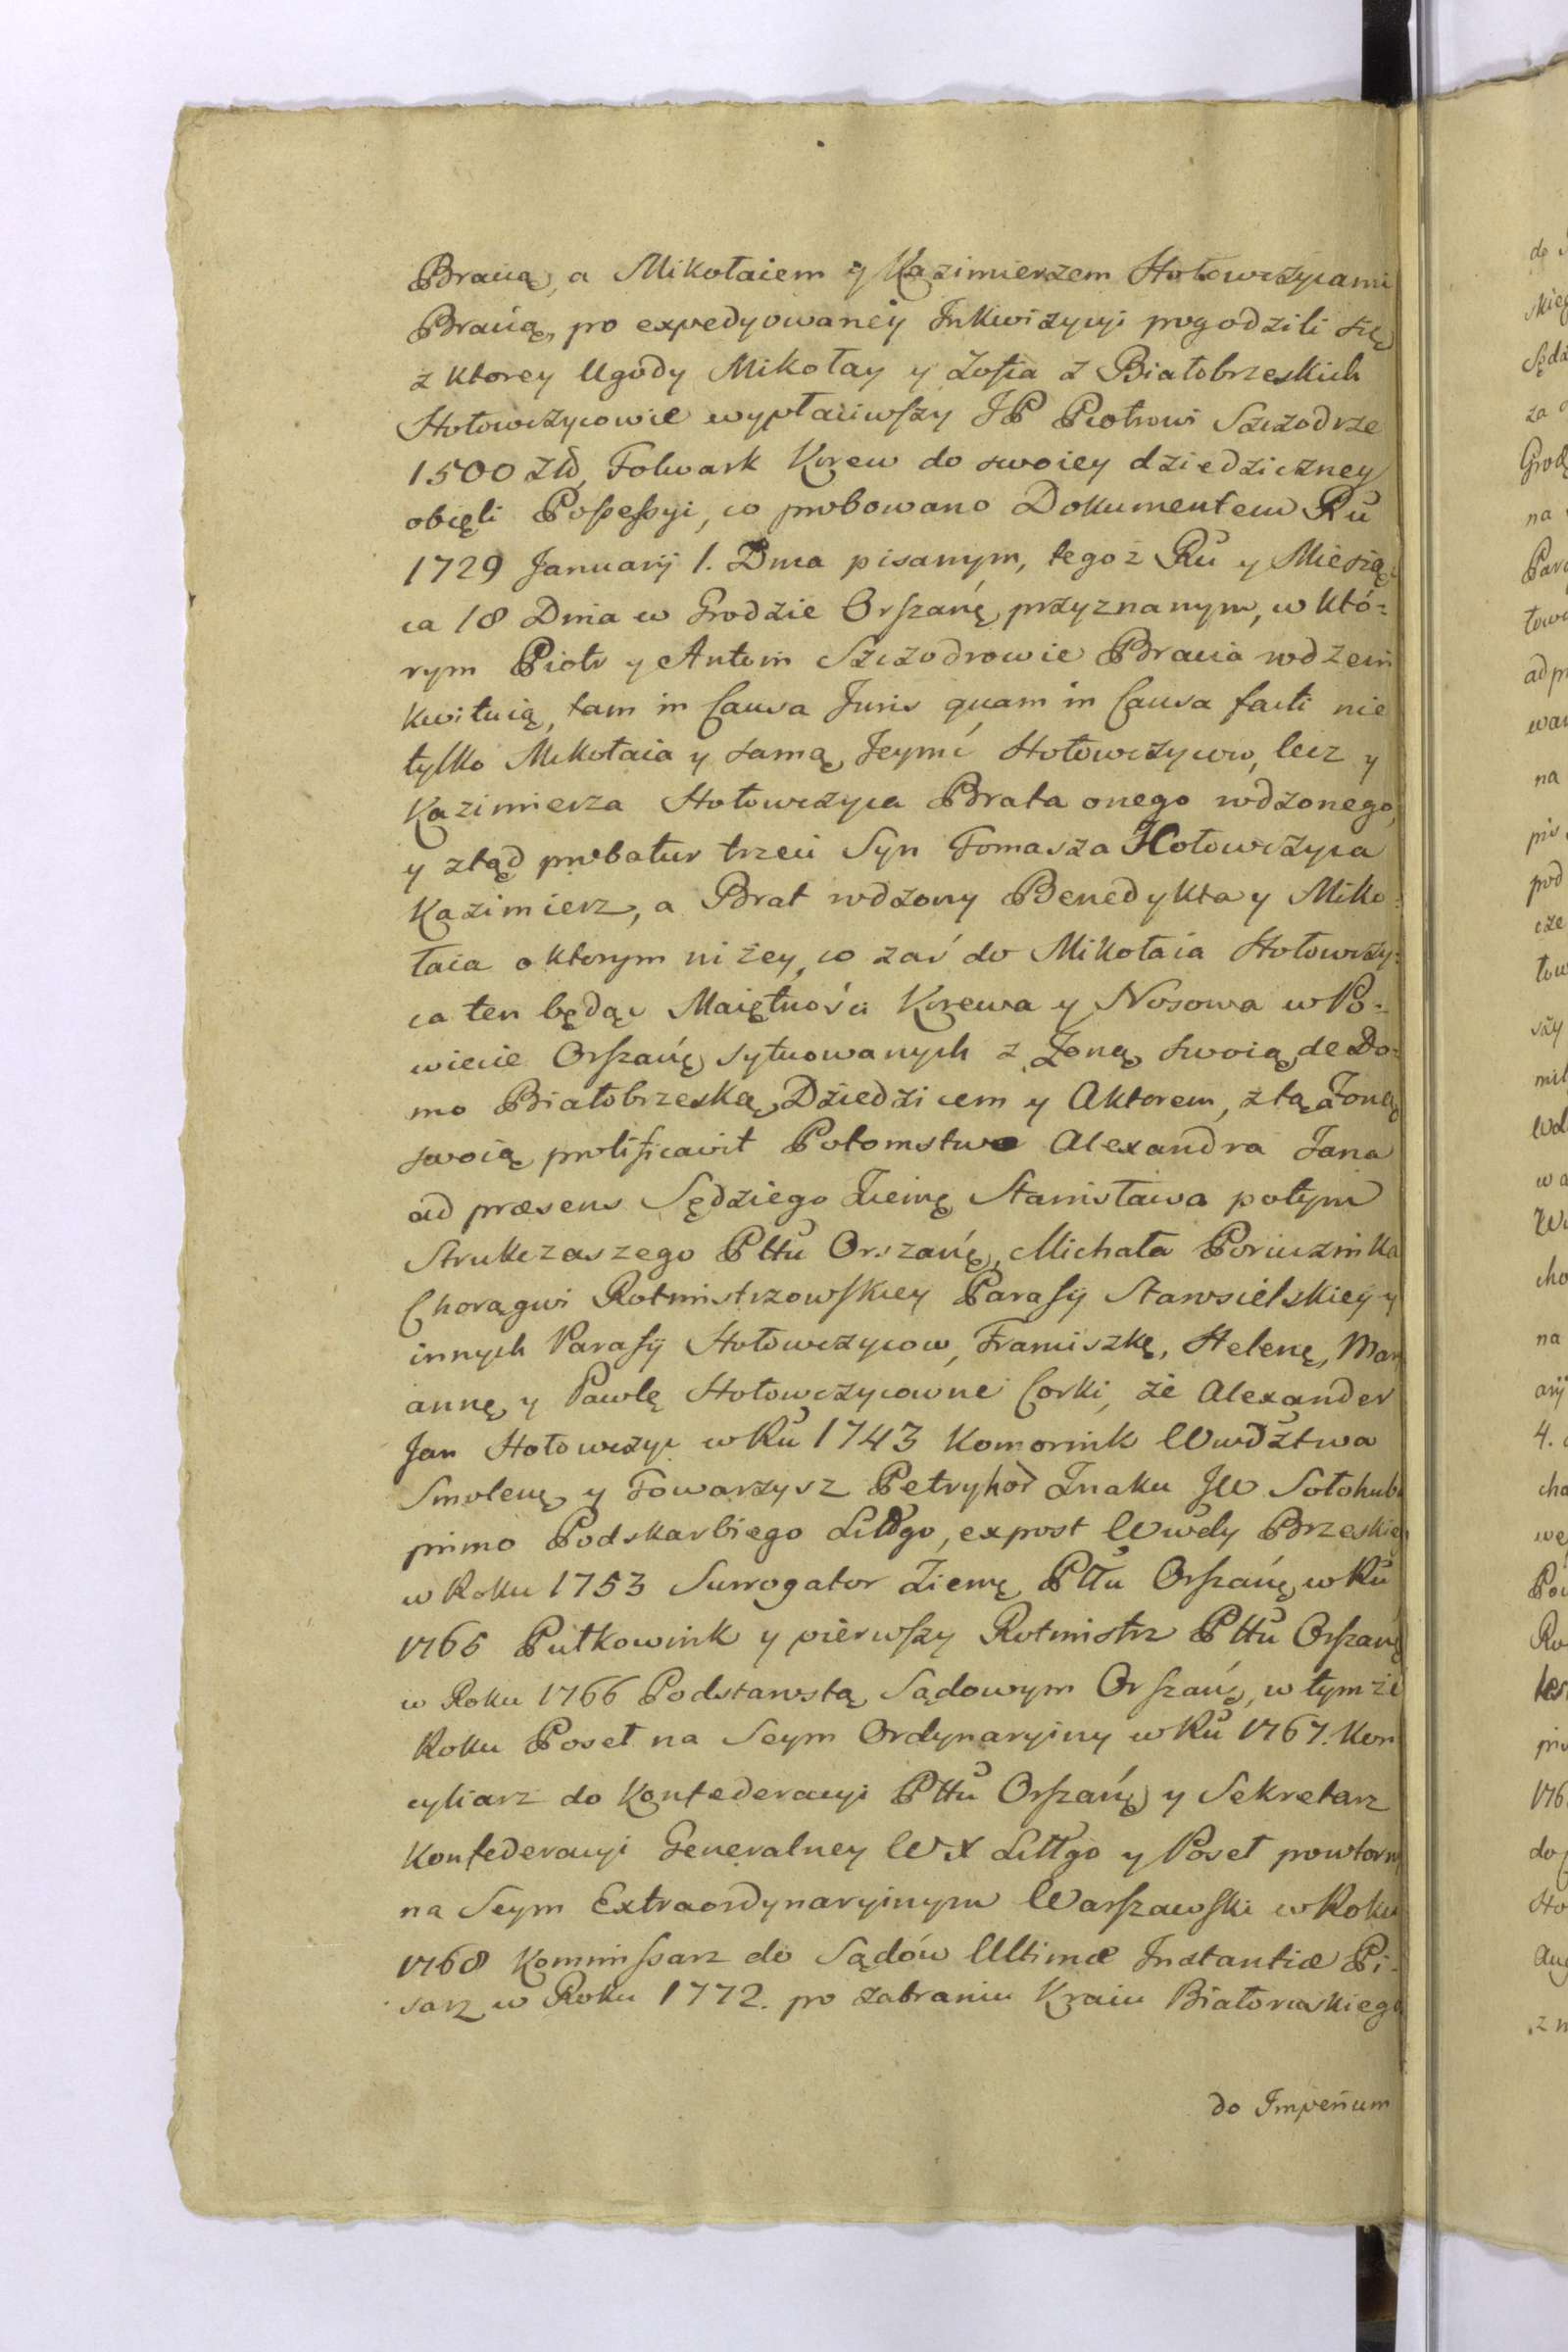 Bracią, a Mikołaiem y Kazimierzem Hołowczycami
Bracią, po expedyowaney Inkwizycyi pogodzili się
z ktorey Ugody Mikołay y Zofia z Białobrzeskich
Hołowczycowie wypłaciwszy JP Piotrowi Szczodrze
1500 Złł, Folwark Kirew do swoiey dziedziczney
obięli Possessyi, co probowano Dokumentem Rŭ
1729 Januarÿ 1. Dnia pisanym, tegoż Rŭ y Miesią-
ca 18 Dnia w Grodzie Orszańę, przyznanym, w któ=
rym Piotr y Antoni Szczodrowie Bracia rodzeni
kwituią, tam in Causa Juris quam in Causa facti nie
tylko Mikołaia y samą Jeymć Hołowczycow, lecz y
Kazimierza Hołowczyca Brata onego rodzonego,
y ztąd probatur trzeci Syn Tomasza Hołowczyca
Kazimierz, a Brat rodzony Benedykta y Miko=
łaia o ktorym niżey, co zaś do Mikołaia Hołowczy=
ca ten będąc Maiętności Kirewa y Nosowa w Po=
wiecie Orszańę sytuowanych z Żoną swoią de Do=
mo Białobrzeską Dziedzicem y Aktorem, z tą Żoną
swoią prolificavit Potomstwo Alexandra Jana
ad præsens Sędziego Ziemę Stanisława potym
Strukczaszego Pttŭ Orszańę, Michała Porucznika
Chorągwi Rotmistrzowskiey Parafÿ Starosielskiey y
innych Parafÿ Hołowczycow, Franciszkę, Helenę, Mar
annę y Pawlę Hołowczycowne Corki, że Alexander
Jan Hołowczyc w Rŭ 1743 Komornik Wwdztwa
Smoleńę y Towarzysz Petyhor Znaku JW Sołohuba
primo Podskarbiego Littgo, expost Wwdy Brzeskieg
w Roku 1753 Surrogator Ziemę Pttŭ Orszańę w Rŭ
1765 Pułkownik y pierwszy Rotmistrz Pttŭ Orszańę
w Roku 1766 Podstarostą Sądowym Orszańę, w tymże
Roku Poseł na Seym Ordynaryiny w Rŭ 1767. Kon
cyliarz do Konfederacyi Pttŭ Orszańę y Sekretarz
Konfederacyi Generalney WX Littgo y Poseł powtorny
na Seym Extraordynaryinym Warszawski w Roku
1768 Kommissarz do Sądów Ultimæ Instantiæ Pi-
sarz w Roku 1772. po zabraniu Kraiu Białoruskiego
do Imperium